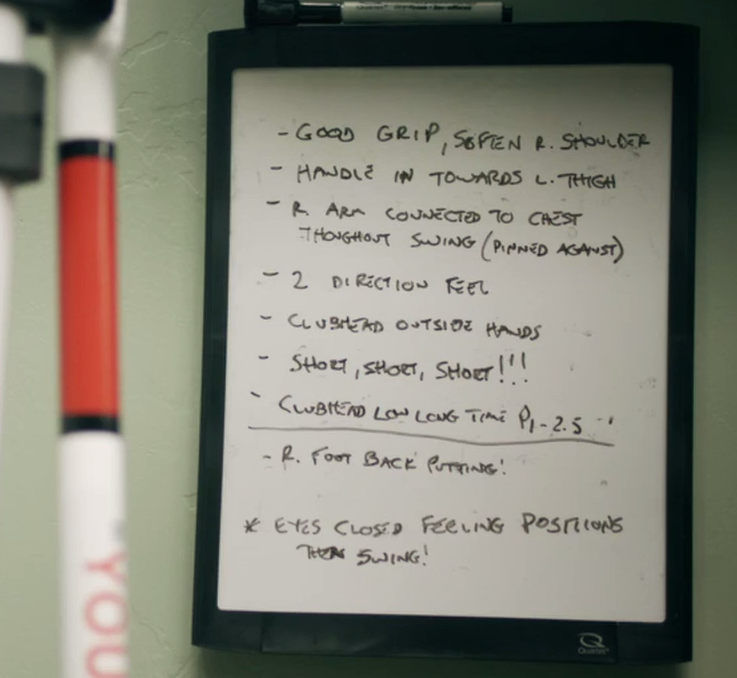 - GOOD GRIP, SOFTEN R. SHOULDER
- HANDLE IN TOWARDS L. THIGH
- R. ARM CONNECTED TO CHEST
THOUGHOUT SWING (PINNED AGAINST)
- 2 DIRECTION FEEL
- CLUBHEAD OUTSIDE HANDS
- SHORT, SHORT, SHORT!!!
- CLUBHEAD LOW LONG TIME P1-2.5
- R. FOOT BACK PUTTING!
* EYES CLOSED FEELING POSITIONS
THEN SWING!
Quartet
YOU